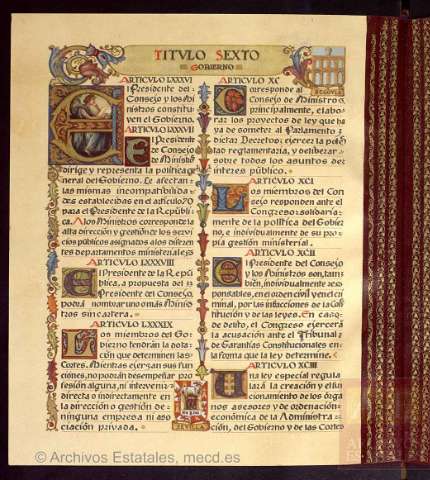 TITVLO SEXTO
GOBIERNO
ARTICVLO LXXXVI
El Presidente del
Consejo y los Mi
nistros constitu
yen el Gobierno
ARTICVLO LXXXVII
El Presidente
de Consejo
de Ministros
dirige y representa la política ge
neral del Gobierno. Le afectan
las mismas incompatibilida
des establecidas en el artículo 70
para el Presidente de la Repúbli
ca. A los Ministros corresponde la
alta dirección y gestión de los servi
cios públicos asignados a los diferen
tes departamentos ministeriales
ARTICVLO LXXXVIII
El Presidente de la Repú
blica, a propuesta del
Presidente del Consejo,
podrá nombrar uno o más Minis
tros sin cartera.
ARTICVLO LXXXIX
Los miembros del Go
bierno tendrán la dota
ción que determinen las
Cortes. Mientras ejerzan sus fun
ciones, no podrán desempeñar pro
fesión alguna, ni intervenir
directa o indirectamente en
la dirección o gestión de
ninguna empresa ni aso
ciación privada.
SEVILLA
SEGOVIA
ARTICVLO XC
Corresponde al
Consejo de Ministros,
principalmente, elabo
rar los proyectos de ley que ha
ya de someter al Parlamento;
dictar Decretos; ejercer la potes
tad reglamentaria, y deliberar
sobre todos los asuntos de
interés público.
ARTICVLO XCI
Los miembros del Con
sejo responden ante el
Congreso: solidaria
mente de la política del Gobier
no, e individualmente de su pro
pia gestión ministerial.
ARTICVLO XCII
El Presidente del Consejo
y los Ministros son, tam
bién, individualmente res
ponsables, en el orden civil y en el cri
minal, por las infracciones de la Cons
titución y de las leyes. En caso
de delito, el Congreso ejercerá
la acusación ante el Tribunal
de Garantías Constitucionales en
la forma que la ley determine.
ARTICVLO XCIII
Una ley especial regula
rá la creación y el fun
cionamiento de los órga
nos asesores y de ordenación
económica de la Administra
ción, del Gobierno y de las Cortes
© Archivos Estatales, mecd.es